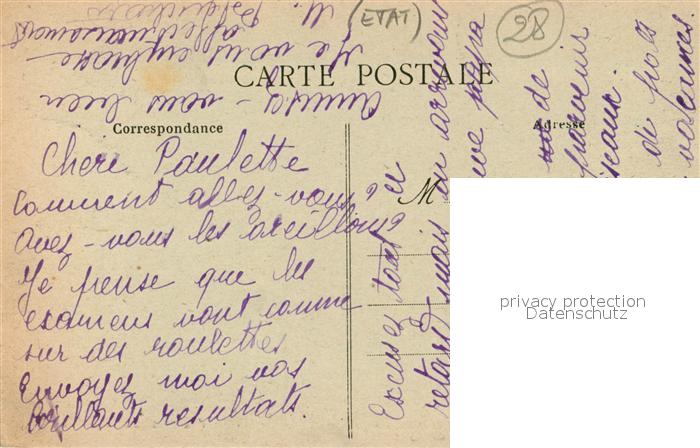 (ETAT)
28
CARTE POSTALE
Correspondance
Adresse
Chère Paulette
Comment allez-vous?
Avez-vous les oreillons?
Je pense que les
examens vont comme
sur des roulettes
Envoyez moi vos
brillants resultats.
M
Excusez tout ce
retard mais en arrivant
papa
de
di
vacances
Amusez-vous bien
Je vous embrasse
affectueusement
M.
privacy protection
Datenschutz